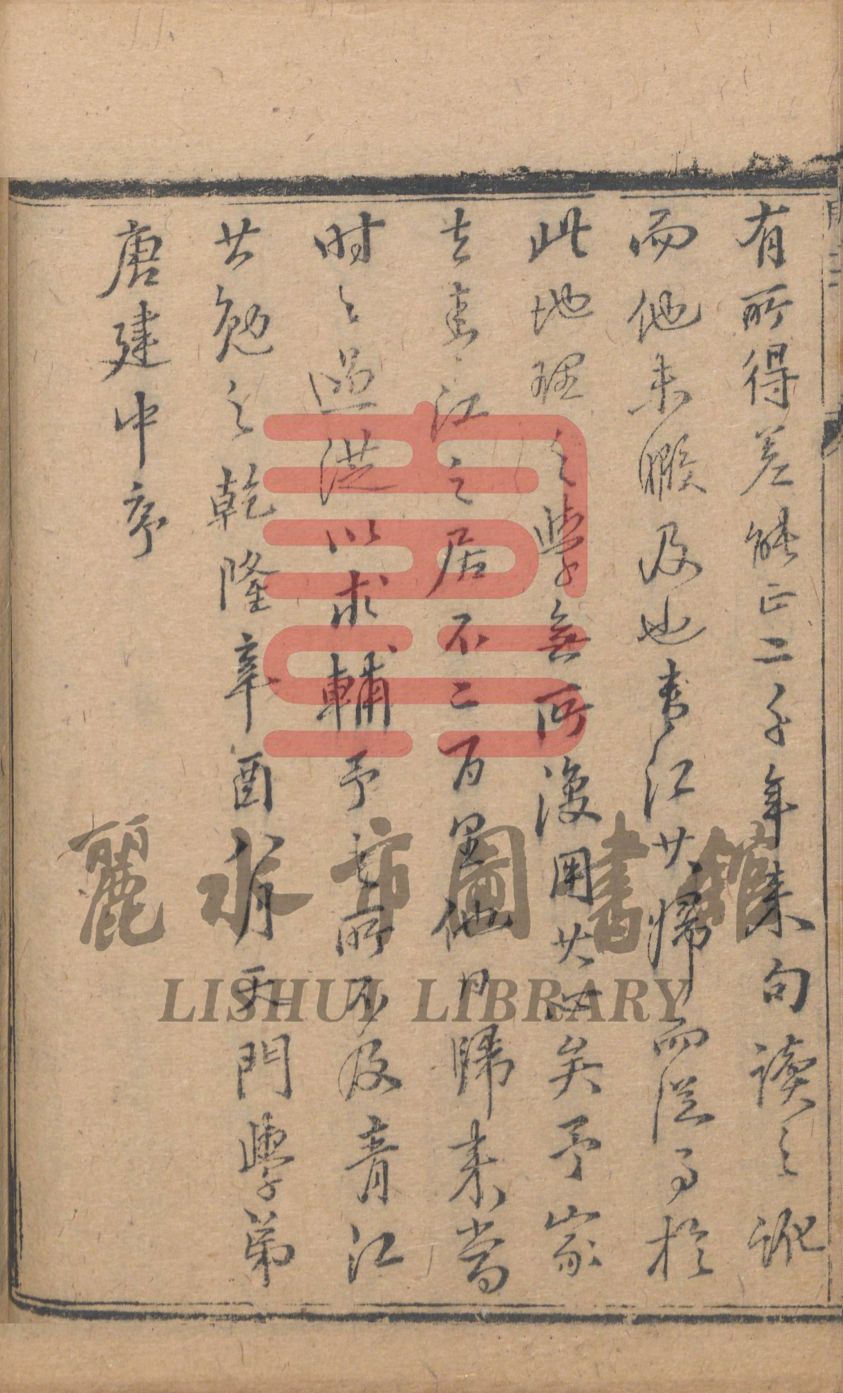 有所得差能正二千年來句讀之訛
而他未暇及也青江其歸而從事於
此地理之學無所復用其心矣予家
去青江之居不二百里他日歸來當
時々過從以求輔予之所不及青江
其勉之乾隆辛酉八月天門學弟
唐建中序
麗水市圖書館
LISHUI LIBRARY